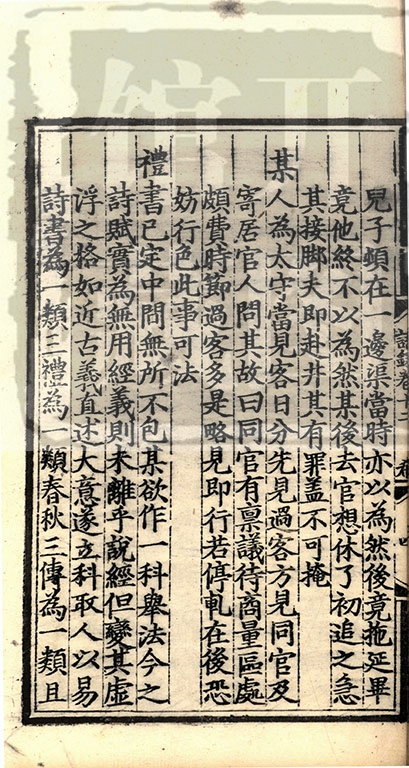 兒子頓在一邊渠當時亦以為然後竟拖延畢
竟他終不以為然某後去官想休了初追之急
其接脚夫即赴井其有罪盖不可掩
某人為太守當見客日分先見過客方見同官及
寄居官人問其故曰同官有禀議待商量區處
頗費時節過客多是略見即行若停軋在後恐
妨行色此事可法
禮書已定中間無所不包某欲作一科舉法今之
詩賦實為無用經義則未離乎說經但變其虛
浮之格如近古義直述大意遂立科取人以易
詩書為一類三禮為一類春秋三傳為一類且